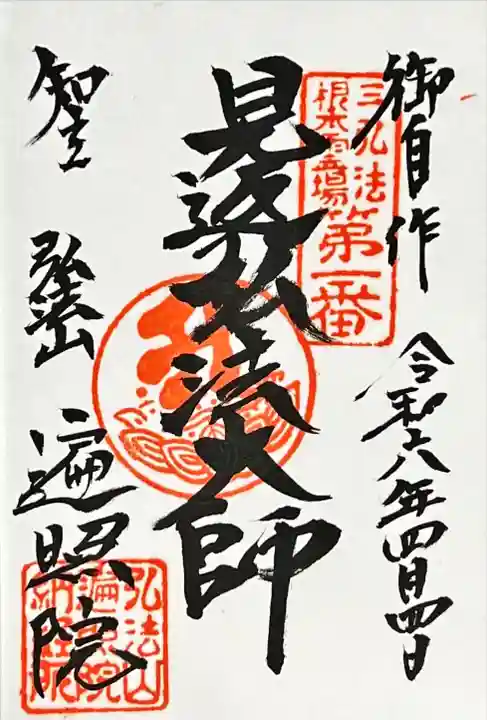 御自作
令和六年四月四日
三弘法
根本霊場
第一番
見返弘法大師
知立
弘法山
遍照院
弘法山
遍照院
納経所